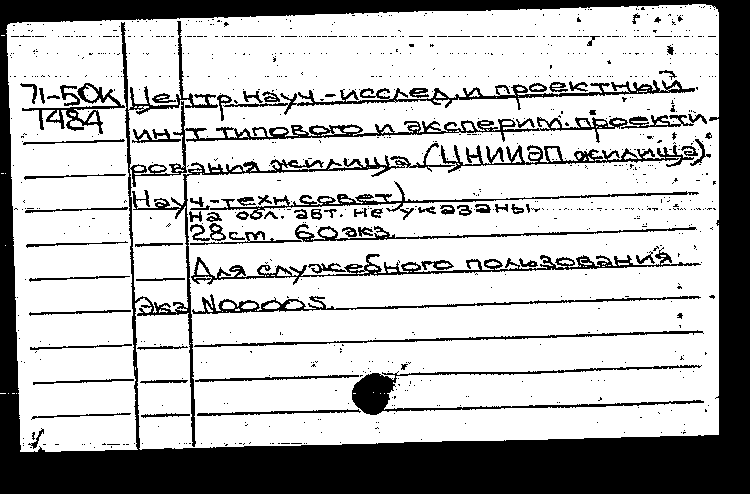 71-50К Центр. науч.-исслед. и проектный
1484 ин-т типового и эксперим. проекти-
рования жилища. (ЦНИИЭП жилища).
Науч.-техн. совет).
на обл. авт. не указаны.
28 см. 60 экз.
Для служебного пользования.
Экз. N00005.